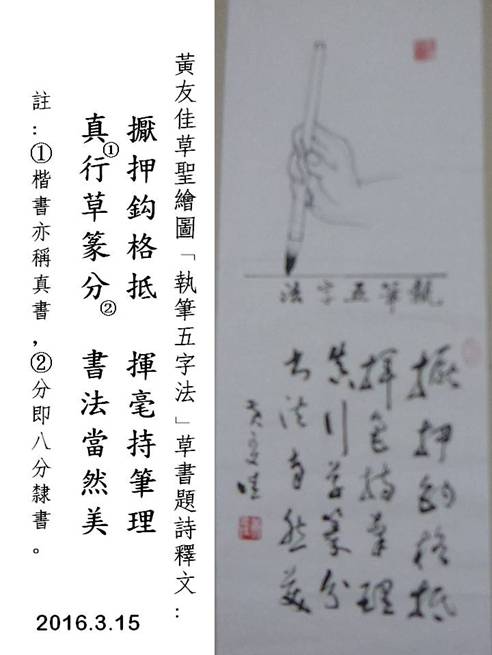 黃友佳草聖繪圖「執筆五字法」草書題詩釋文：
擫押鈎格抵　揮毫持筆理
真①行草篆分②　書法當然美
註：①楷書亦稱真書，②分即八分隸書。
2016.3.15
執筆五字法
擫押鈎格抵
揮毫持筆理
真行草篆分
書法當然美
黃友佳